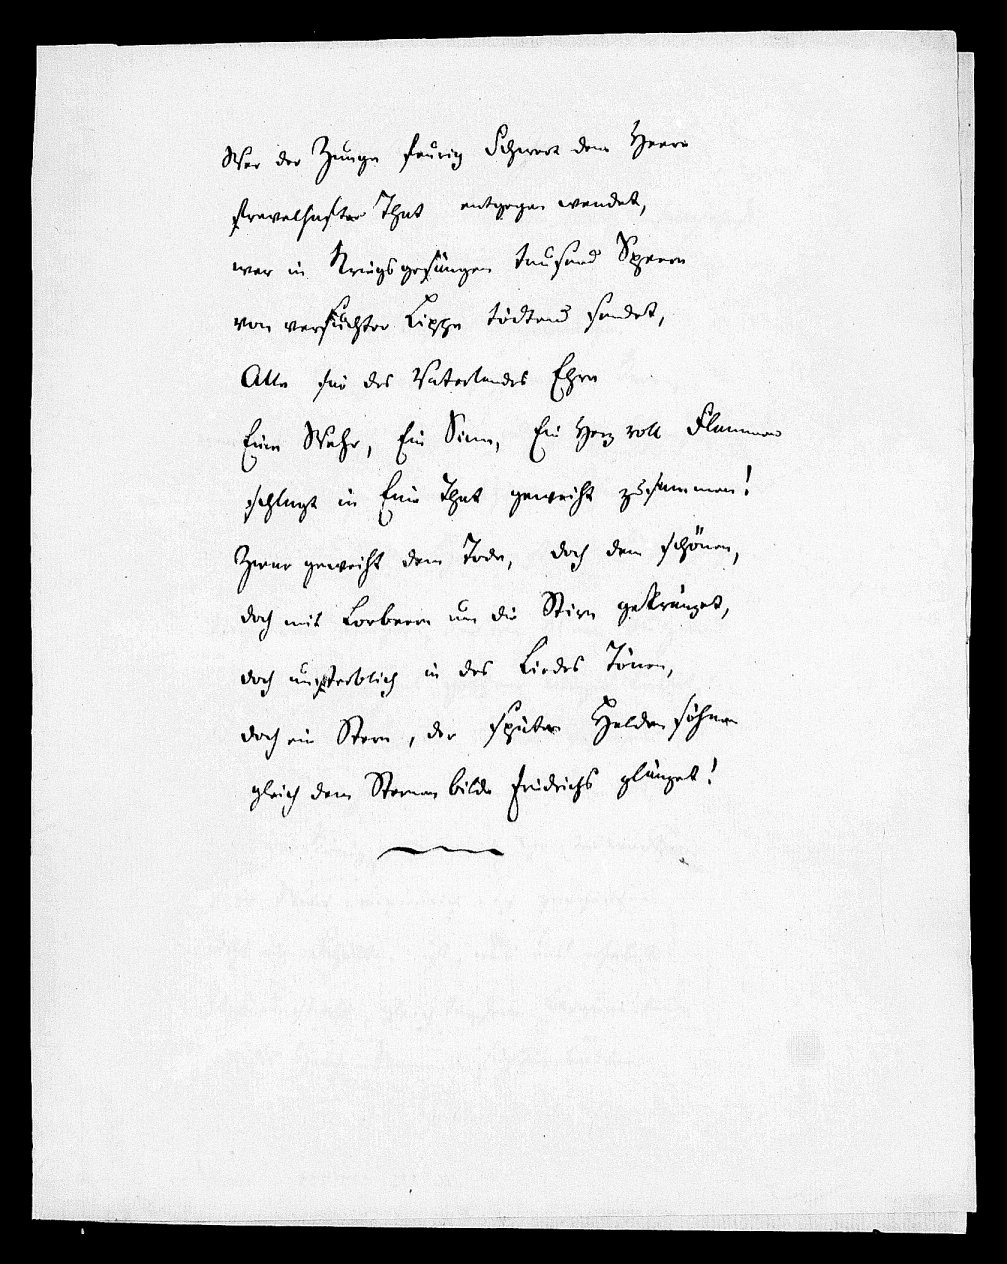 Wer der Zunge feurig Schwert dem Heere
frevelhafter That entgegen wendet,
wer in Kriegsgesängen tausend Speere
von versuchter Lippe tödtend sendet,
Alle für des Vaterlandes Ehre
Eine Wehr, Ein Sinn, Ein Herz voll Flammen
schlagt in Eine That geweiht zusammen!
Zwar geweiht dem Tode, doch dem schönen,
doch mit Lorbeern um die Stirn gekränzet,
doch unsterblich in des Liedes Tönen,
doch ein Stern, der späten Heldensöhnen
gleich dem Sternenbilde Friedrichs glänzet!